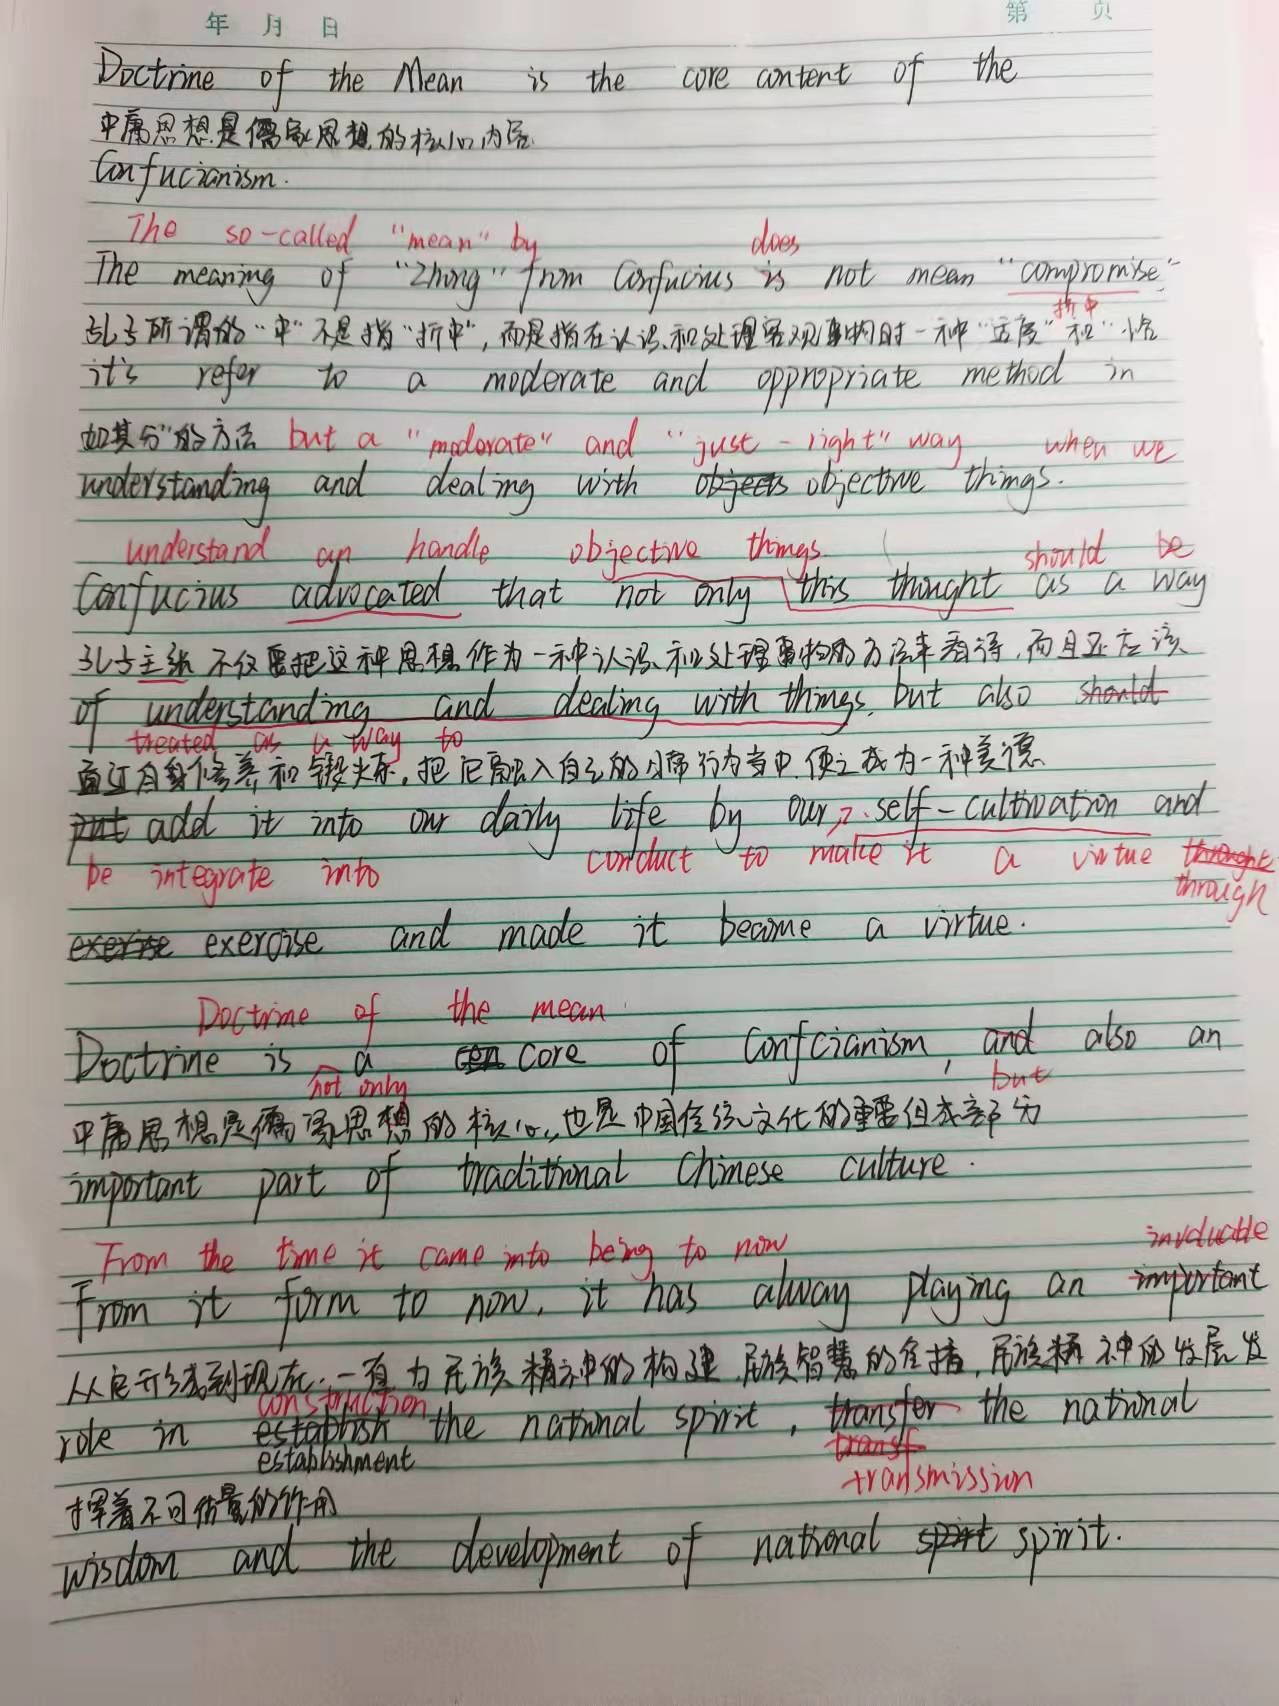 年 月 日 第 页
Doctrine of the Mean is the core content of the
中庸思想是儒家思想的核心内容
Confucianism.
The so-called "mean" by does
The meaning of "Zhong" from Confucius is not mean "compromise"
折中
孔子所谓的"中"不是指"折中",而是指在认识和处理客观事物时一种"适度"和"恰
it's refer to a moderate and oppropriate method in
如其分"的方法 but a "moderate" and "just-right" way when we
understanding and dealing with objects objective things.
understand an handle objective things should be
Confucius advocated that not only this thought as a way
孔子主张不仅要把这种思想作为一种认识和处理事物的方法来看待,而且还应该
of understanding and dealing with things, but also should
treated as a way to
通过自身修养和锻炼,把它融入自己的日常行为当中,使之成为一种美德
put add it into our daily life by our self-cultivation and
be integrate into conduct to make it a virtue throught
through
exerise exercise and made it become a virtue.
Doctrine of the mean
Doctrine is a cen core of Confcianism, and also an
not only but
中庸思想是儒家思想的核心,也是中国传统文化的重要组成部分
important part of traditional Chinese culture.
From the time it came into being to now invaluable
From it form to now, it has alway playing an important
从它形成到现在,一直为民族精神的构建,民族智慧的传播,民族精神的发展发
construction
role in establish the national spirit, transfer the national
establishment transf
transmission
挥着不可估量的作用
wisdom and the development of national spirt spirit.